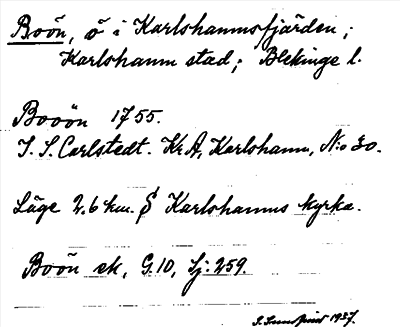 Boön, ö i Karlshamnsfjärden;
Karlshamn stad; Blekinge l.
Booön 1755.
J. S. Carlstedt. Kr.A, Karlshamn, N:o 30.
Läge 2.6 km. S Karlshamns kyrka.
Boön ek, G.10, Sj: 259.
1937.